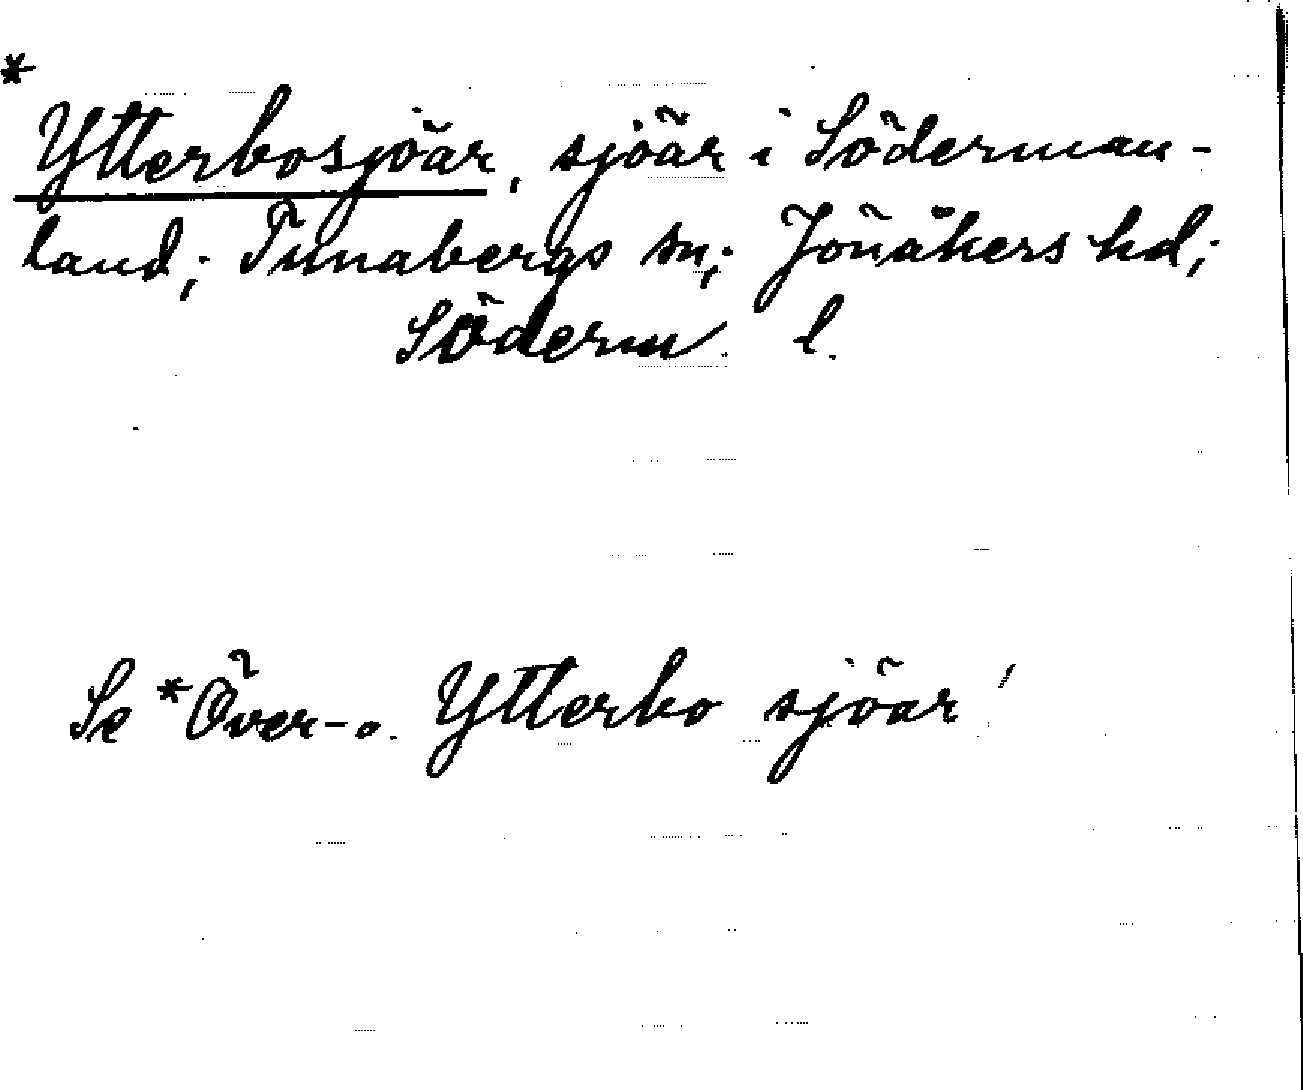 *
Ytterbosjöar, sjöar i Söderman-
land; Tunabergs sn; Jönåkers hd;
Söderm. l.
Se *Över- o. Ytterbo sjöar!